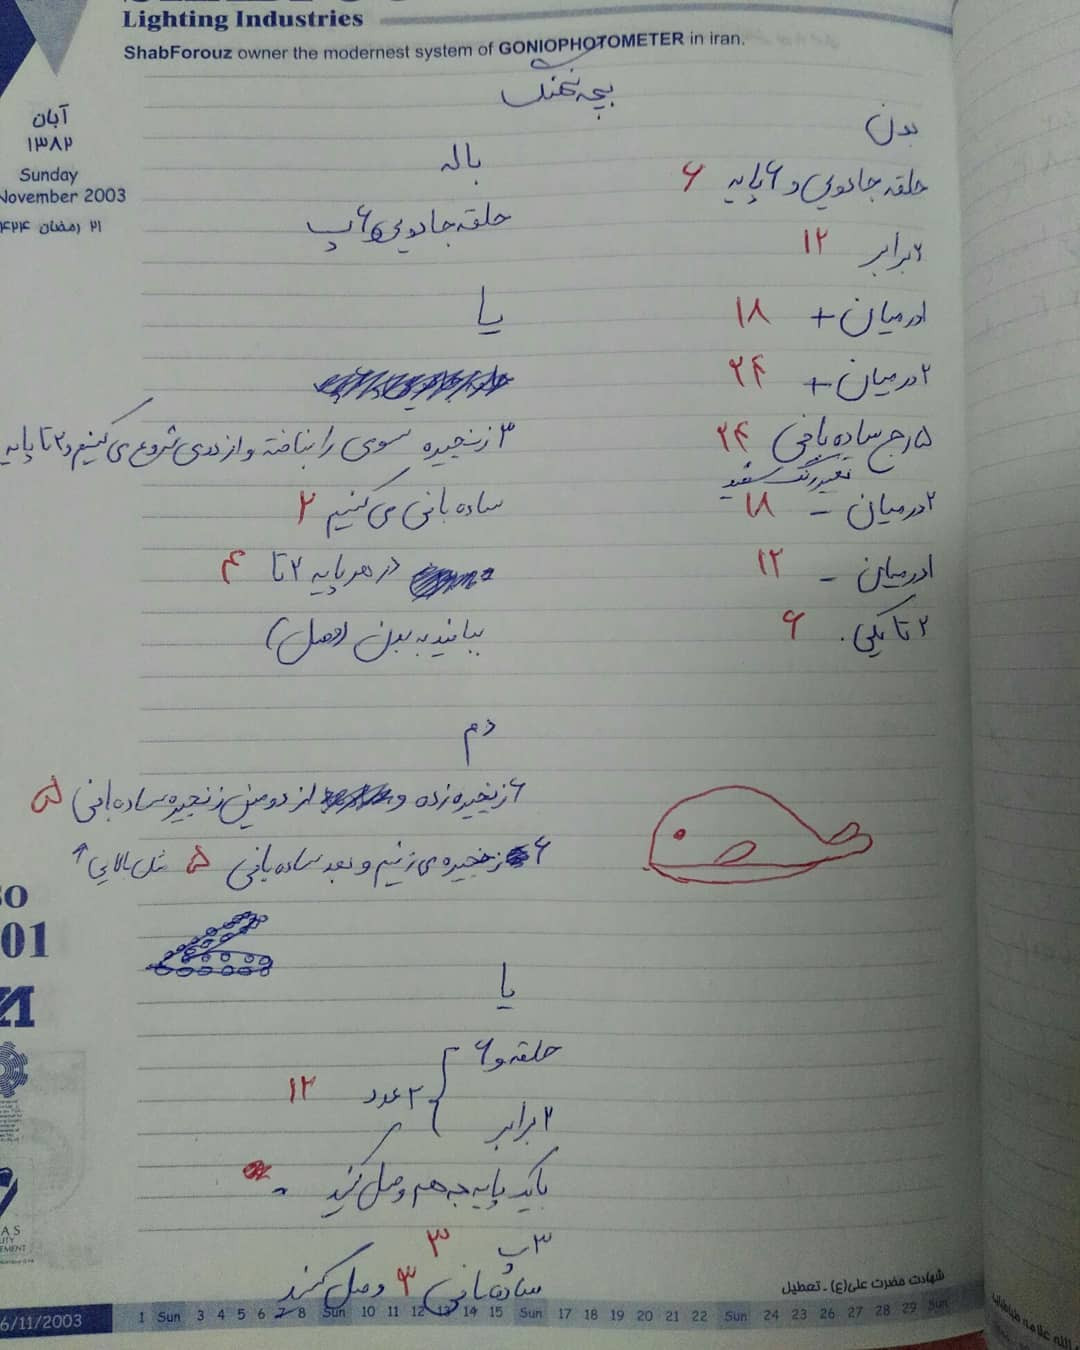 Lighting Industries
ShabForouz owner the modernest system of GONIOPHOTOMETER in iran.
آبان
۱۳۸۲
Sunday
November 2003
۲۱ رمضان
بچه نهنگ
بدن
حلقه جادویی و ۶ پایه ۶
۲ برابر ۱۲
۱ درمیان + ۱۸
۲ درمیان + ۲۴
۵ رج ساده بافی ۲۴
تغییر رنگ سفید
۲ درمیان - ۱۸
۱ درمیان - ۱۲
۲ تا یکی. ۶
باله
حلقه جادویی ۶ پ
یا
۳ زنجیره سوی را بافته و از دومی شروع می کنیم و ۲ تا پایه
ساده بافی می کنیم ۲
در هر پایه ۲ تا ۴
ببافید به بدن (وصل)
دم
۶ زنجیره زده و از دومین زنجیره ساده بافی ۵
۶ زنجیره می زنیم و بعد ساده بافی ۵ مثل بالایی ↑
یا
حلقه و ۶
۲ برابر
۲ عدد ۱۲
با یک پایه به هم وصل کنید
۳ پ ۳
ساده بافی ۳ وصل کنید
01
شهادت حضرت علی(ع) - تعطیل
6/11/2003
1 Sun 3 4 5 6 7 8 Sun 10 11 12 13 14 15 Sun 17 18 19 20 21 22 Sun 24 23 26 27 28 29 Sun